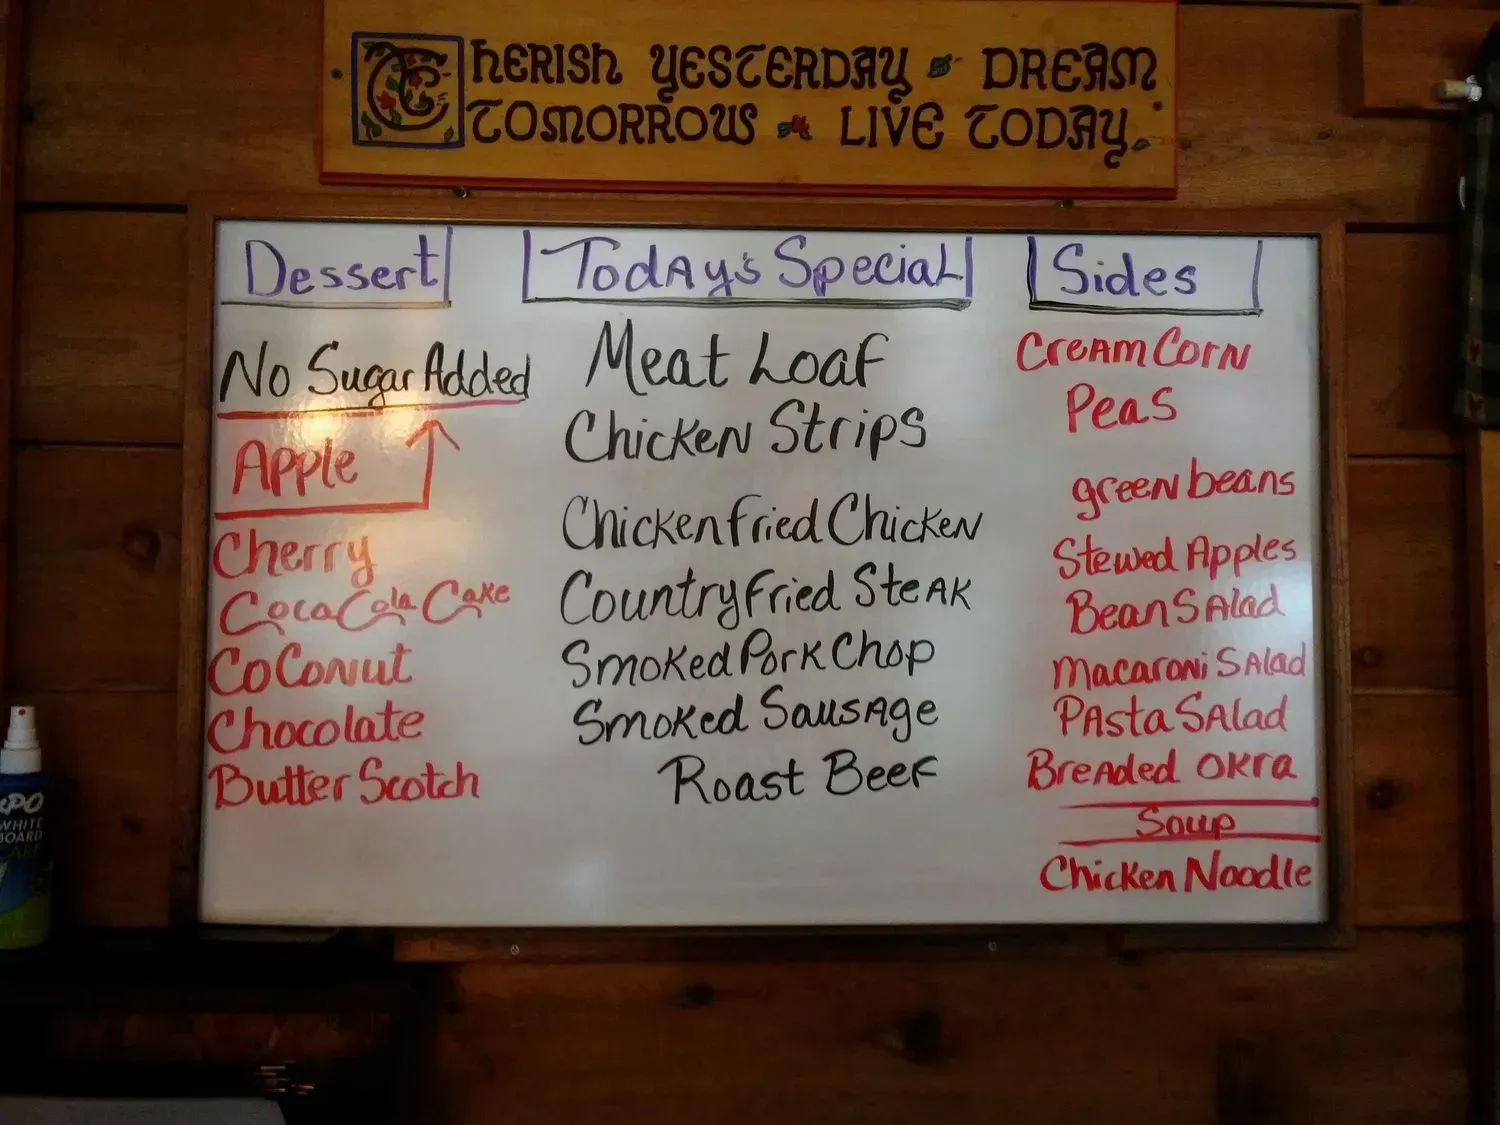 Cherish Yesterday Dream
Tomorrow Live Today.
Dessert
No Sugar Added
Apple
Cherry
Coca Cola Cake
Coconut
Chocolate
Butter Scotch
Today's Special
Meat Loaf
Chicken Strips
Chicken Fried Chicken
Country Fried Steak
Smoked Pork Chop
Smoked Sausage
Roast Beef
Sides
Cream Corn
Peas
green beans
Stewed Apples
Bean Salad
Macaroni Salad
Pasta Salad
Breaded Okra
Soup
Chicken Noodle
XPO
WHITE
BOARD